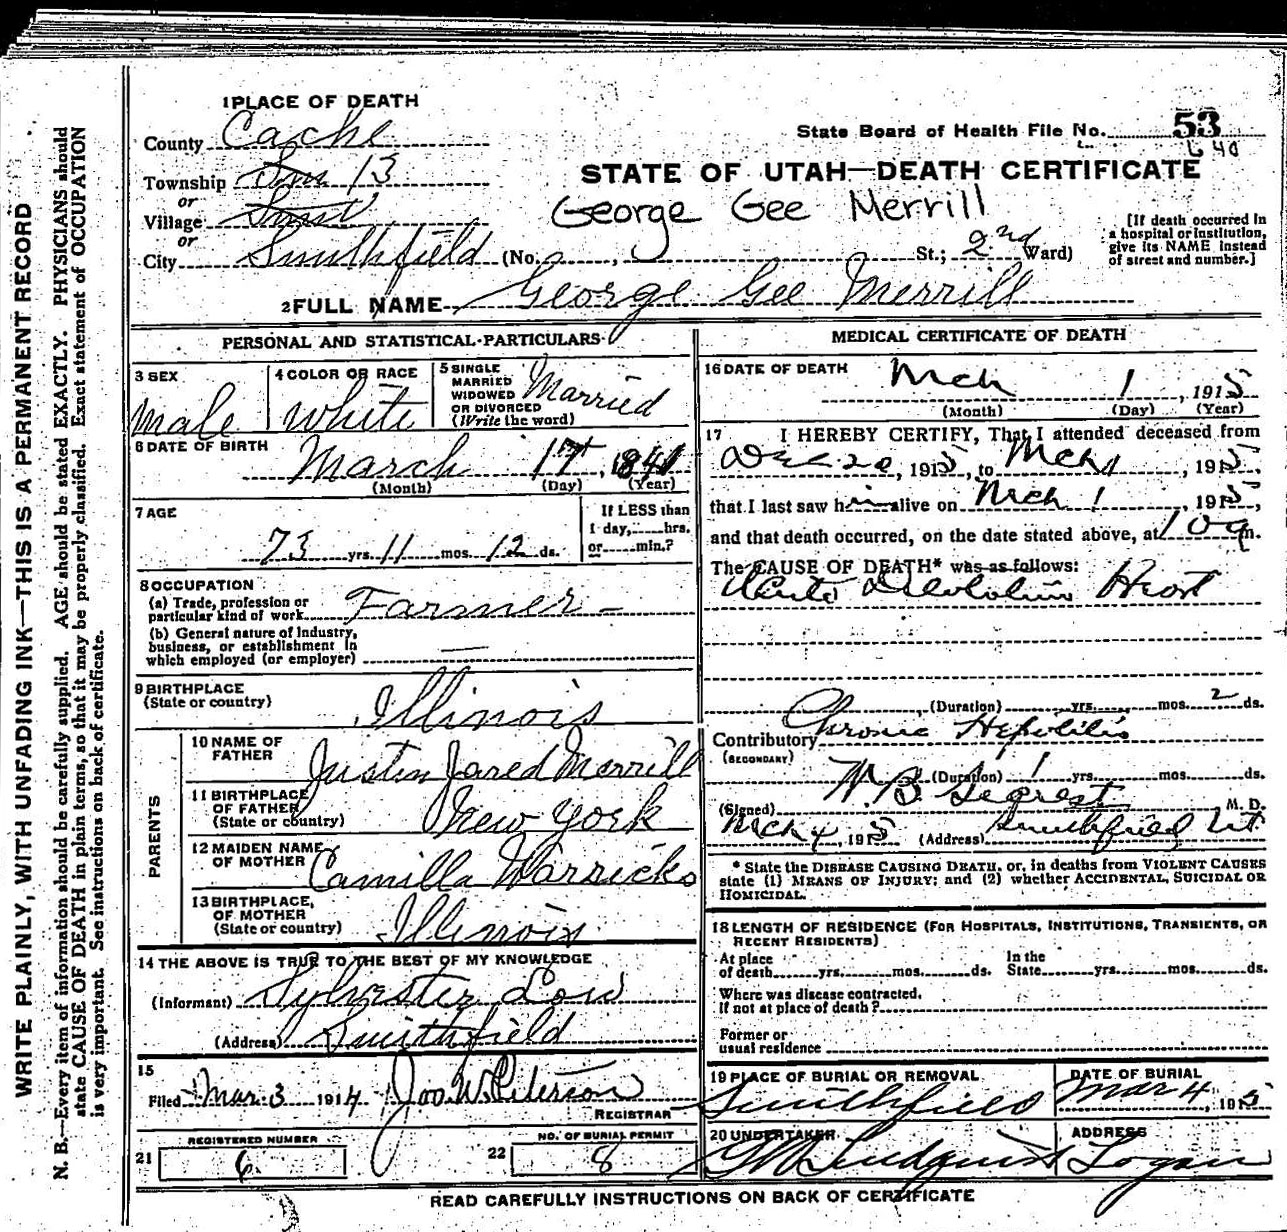 WRITE PLAINLY, WITH UNFADING INK—THIS IS A PERMANENT RECORD
N. B.—Every item of information should be carefully supplied. AGE should be stated EXACTLY. PHYSICIANS should
state CAUSE OF DEATH in plain terms, so that it may be properly classified. Exact statement of OCCUPATION
is very important. See instructions on back of certificate.
1 PLACE OF DEATH
County Cache
Township 13
or
Village
or
City Smithfield (No. , St.; 2nd Ward)
State Board of Health File No. 53
640
STATE OF UTAH—DEATH CERTIFICATE
George Gee Merrill
[If death occurred in
a hospital or institution,
give its NAME instead
of street and number.]
2 FULL NAME George Gee Merrill
PERSONAL AND STATISTICAL PARTICULARS
3 SEX
Male
4 COLOR OR RACE
White
5 SINGLE
MARRIED
WIDOWED
OR DIVORCED
(Write the word)
Married
6 DATE OF BIRTH
March 17, 1841
(Month) (Day) (Year)
7 AGE
73 yrs. 11 mos. 12 ds.
If LESS than
1 day,......hrs.
or......min.?
8 OCCUPATION
(a) Trade, profession or
particular kind of work Farmer –
(b) General nature of Industry,
business, or establishment in
which employed (or employer) —
9 BIRTHPLACE
(State or country)
Illinois
PARENTS
10 NAME OF
FATHER
Justin Jared Merrill
11 BIRTHPLACE
OF FATHER
(State or country)
New York
12 MAIDEN NAME
OF MOTHER
Camilla Warricks
13 BIRTHPLACE,
OF MOTHER
(State or country)
Illinois
14 THE ABOVE IS TRUE TO THE BEST OF MY KNOWLEDGE
(Informant) Sylvester Low
(Address) Smithfield
15
Filed Mar 3 1914 Jos W. Peterson
REGISTRAR
REGISTERED NUMBER
21 6
NO. OF BURIAL PERMIT
22 8
MEDICAL CERTIFICATE OF DEATH
16 DATE OF DEATH
Mch 1, 1915
(Month) (Day) (Year)
17 I HEREBY CERTIFY, That I attended deceased from
Dec 20, 1915, to Mch 1, 1915
that I last saw him alive on Mch 1, 1915,
and that death occurred, on the date stated above, at 10 a m.
The CAUSE OF DEATH* was as follows:
Acute Heart
(Duration) yrs. mos. 2 ds.
Contributory Chronic
(SECONDARY)
(Duration) 1 yrs. mos. ds.
(Signed) M. D.
Mch 4, 1915 (Address) Smithfield Ut.
* State the DISEASE CAUSING DEATH, or, in deaths from VIOLENT CAUSES
state (1) MEANS OF INJURY; and (2) whether ACCIDENTAL, SUICIDAL OR
HOMICIDAL.
18 LENGTH OF RESIDENCE (FOR HOSPITALS, INSTITUTIONS, TRANSIENTS, OR
RECENT RESIDENTS)
At place
of death......yrs......mos......ds.
In the
State......yrs......mos......ds.
Where was disease contracted,
If not at place of death?
Former or
usual residence
19 PLACE OF BURIAL OR REMOVAL
Smithfield
DATE OF BURIAL
Mar 4, 1915
20 UNDERTAKER
Lundquist
ADDRESS
Logan
READ CAREFULLY INSTRUCTIONS ON BACK OF CERTIFICATE